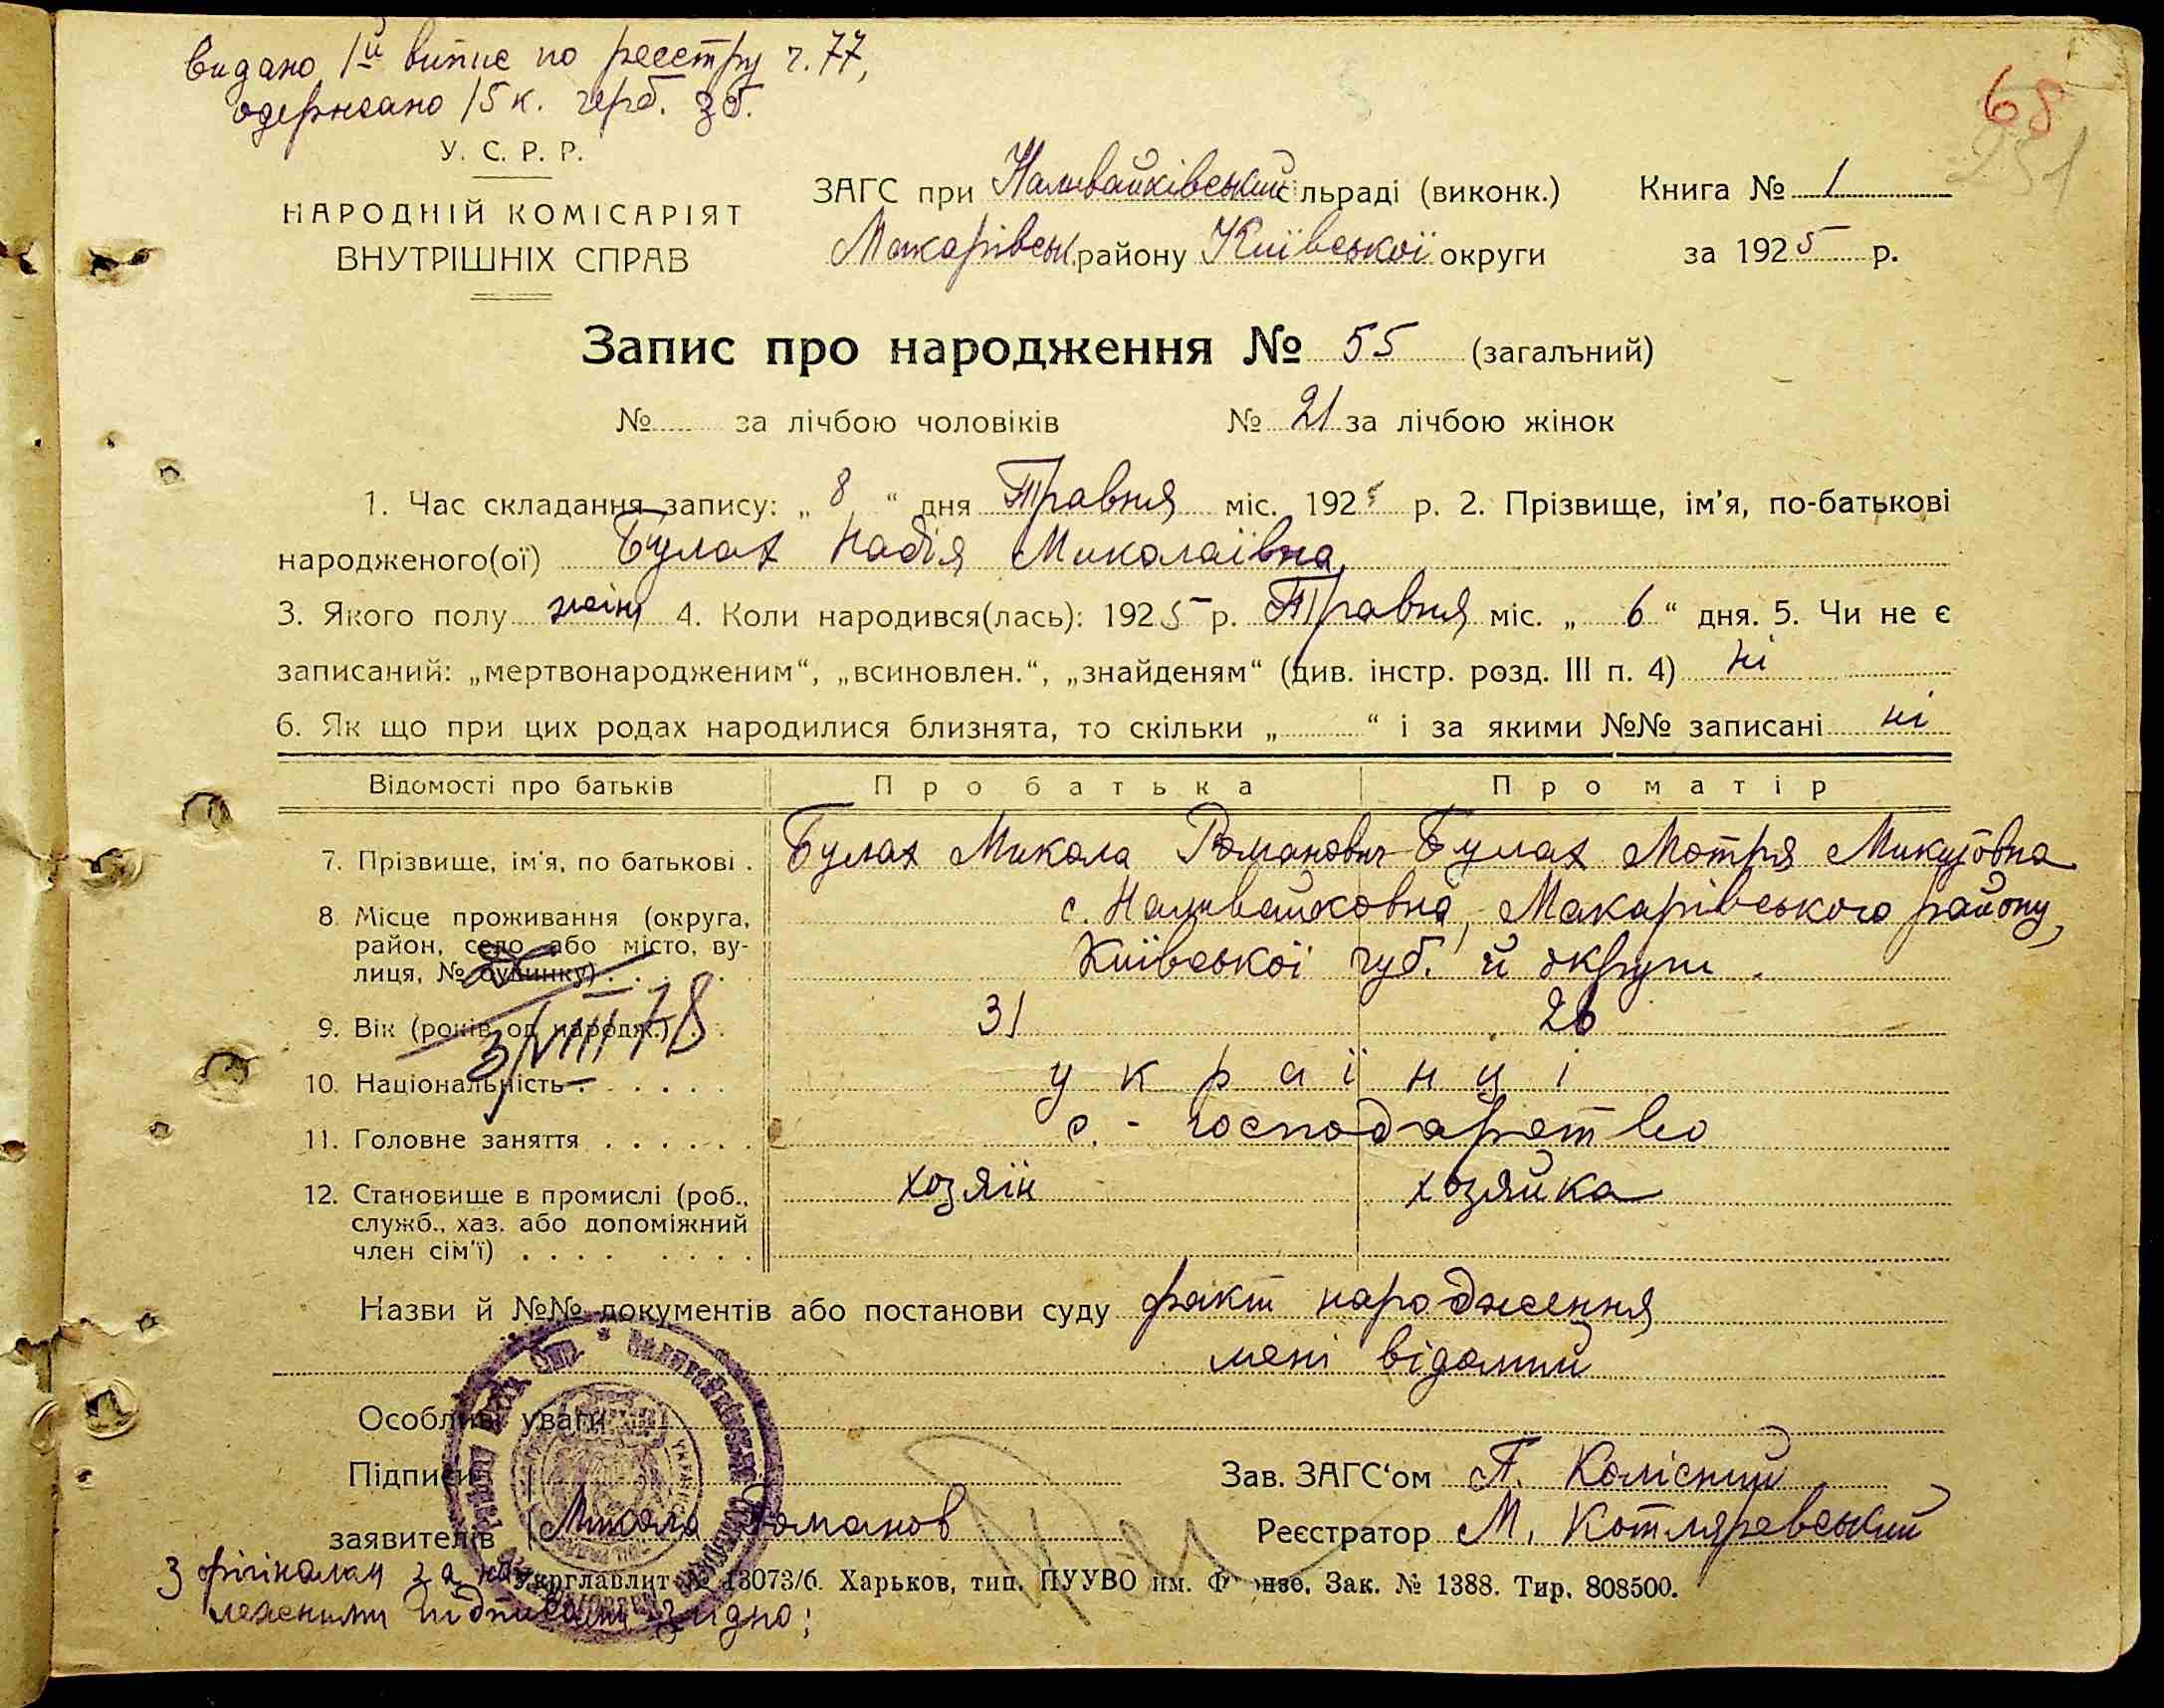 видано 1й випис по реєстру ч. 77,
одержано 15 к. герб. зб.
68
251
У. С. Р. Р.
НАРОДНІЙ КОМІСАРІЯТ
ВНУТРІШНІХ СПРАВ
ЗАГС при Наливайківський сільраді (виконк.)
Макарівськ. району Київської округи
Книга № 1
за 1925 р.
Запис про народження № 55 (загальний)
№ за лічбою чоловіків № 21 за лічбою жінок
1. Час складання запису: „ 8 “ дня Травня міс. 1925 р. 2. Прізвище, ім'я, по-батькові
народженого(ої) Булах Надія Миколаївна
3. Якого полу жін 4. Коли народився(лась): 1925 р. Травня міс. „ 6 “ дня. 5. Чи не є
записаний: „мертвонародженим“, „всиновлен.“, „знайденям“ (див. інстр. розд. III п. 4) ні
6. Як що при цих родах народилися близнята, то скільки „ “ і за якими №№ записані ні
Відомості про батьків Про батька Про матір
7. Прізвище, ім'я, по батькові . Булах Микола Романович Булах Мотря Микитовна
8. Місце проживання (округа,
район, село або місто, ву-
лиця, № будинку) . . . . .
с. Наливайковка, Макарівського району,
Київської губ. й округи.
9. Вік (років од народж.) . . 31 26
3/VIII 78
10. Національність . . . . . . українці
11. Головне заняття . . . . . . с.-господарство
12. Становище в промислі (роб.,
служб., хаз. або допоміжний
член сім'ї) . . . . . . . .
хозяїн хозяйка
Назви й №№ документів або постанови суду факт народження
мені відомий
Особливі уваги
Підписи
заявителів Микола Романов
Зав. ЗАГС'ом П. Колісний
Реєстратор М. Котляревський
З орігіналом за на-
лежними підписами згідно:
Укрглавлит № 13073/б. Харьков, тип. ПУУВО им. Фрунзе. Зак. № 1388. Тир. 808500.